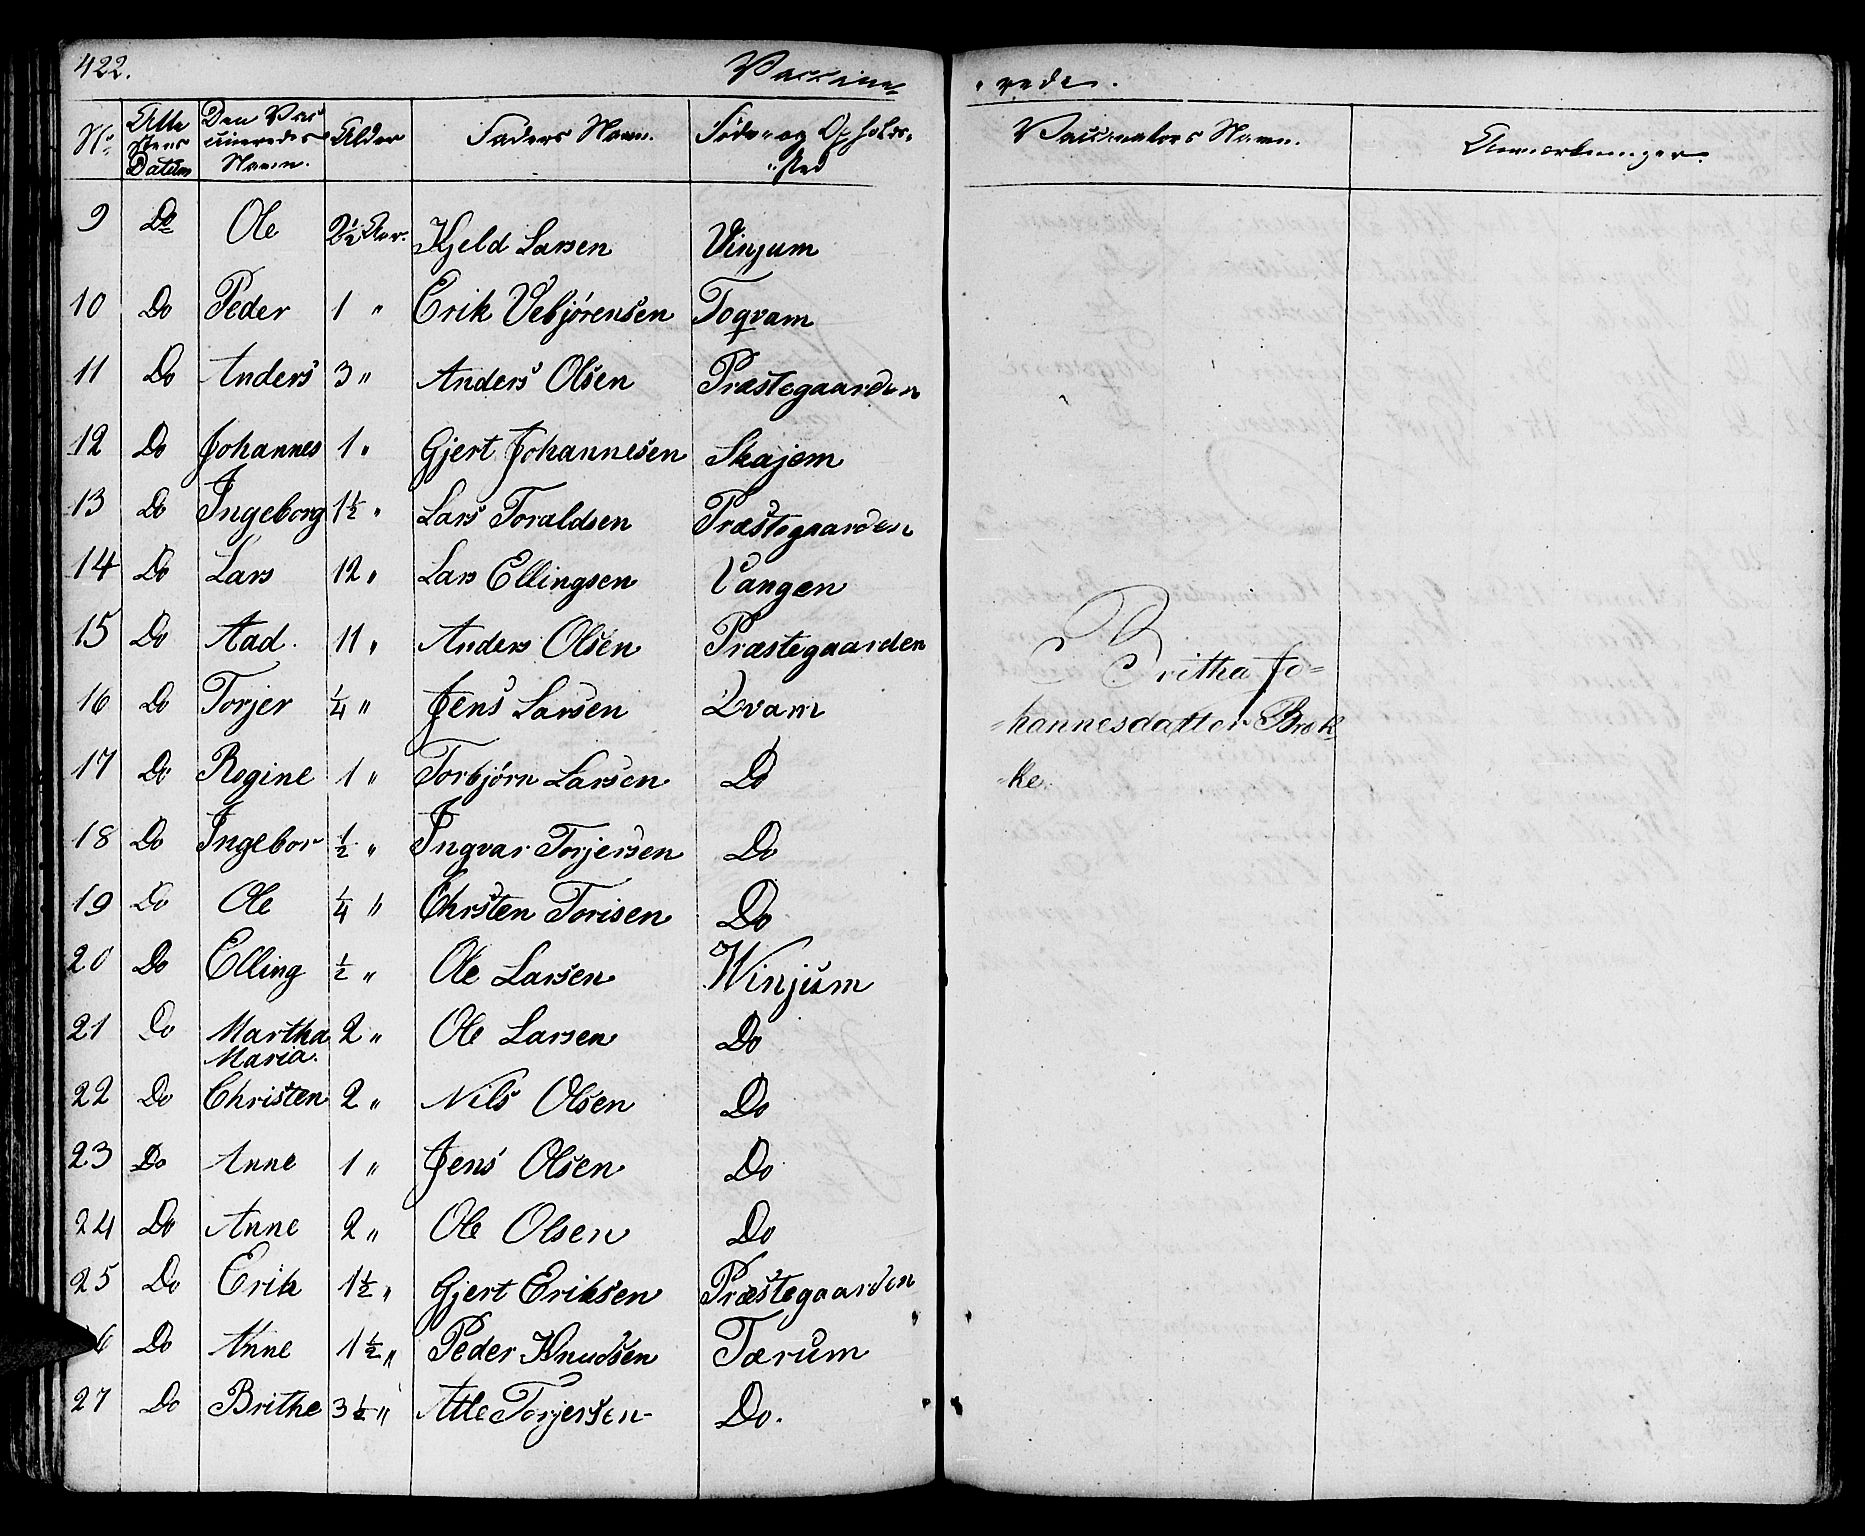 422. Vaccine- rede.
No. Atte stens Datum Den Vac cineredes Navn. Alder Faders Navn. Føde- og Opholds- sted Vaccinators Navn. Anmærkninger.
9 Do Ole 2½ Aar. Kjeld Larsen Vinjum
10 Do Peder 1 " Erik Vebjørensen Toqvam
11 Do Anders 3 " Anders Olsen Præstegaarden
12 Do Johannes 1 " Gjert Johannesen Skajem
13 Do Ingeborg 1½ " Lars Toraldsen Præstegaarden
14 Do Lars 12 " Lars Ellingsen Vangen
15 Do Aad. 11 " Anders Olsen Præstegaarden
16 Do Torjer ¼ " Jens Larsen Qvam
17 Do Regine 1 " Torbjørn Larsen Do
18 Do Ingebor ½ " Ingvar Torjersen Do
19 Do Ole ¼ " Chrsten Torisen Do
20 Do Elling ½ " Ole Larsen Winjum
21 Do Martha Maria. 2 " Ole Larsen Do
22 Do Christen 2 " Nils Olsen Do
23 Do Anne 1 " Jens Olsen Do
24 Do Anne 2 " Ole Olsen Do
25 Do Erik 1½ " Gjert Eriksen Præstegaarden
26 Do Anne 1½ " Peder Knudsen Tærum
27 Do Brithe 3½ " Atle Torjersen Do.
Britha Jo-
-hannesdatter Brek
-ke.